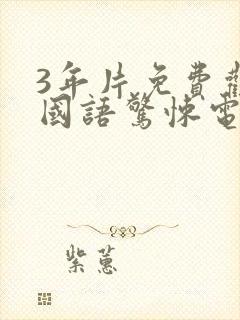 3年片免費
國語驚悚電
紫蕙